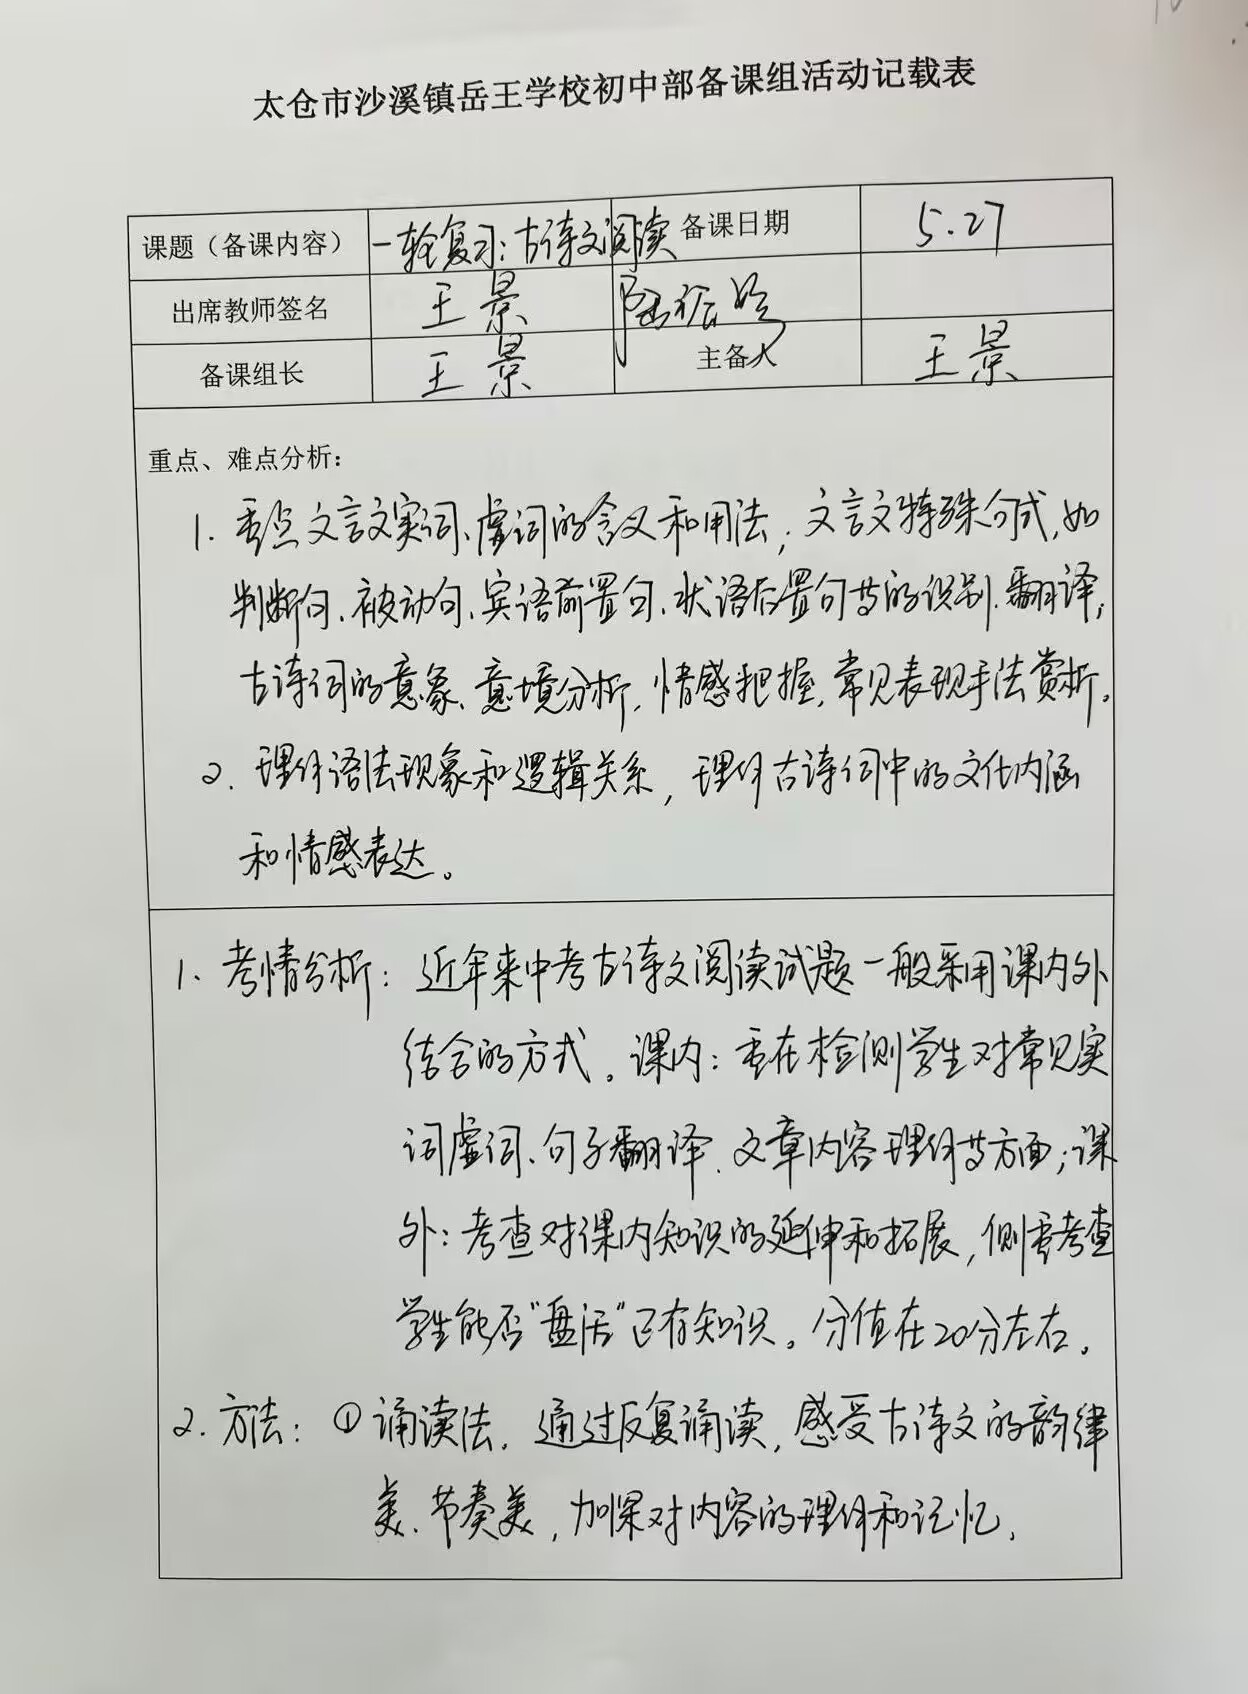 太仓市沙溪镇岳王学校初中部备课组活动记载表
课题（备课内容） 一轮复习：古诗文阅读 备课日期 5.27
出席教师签名 王景
备课组长 王景 主备人 王景
重点、难点分析：
1. 重点文言文实词、虚词的含义和用法；文言文特殊句式，如
判断句、被动句、宾语前置句、状语后置句等的识别、翻译；
古诗词的意象、意境分析，情感把握，常见表现手法赏析。
2. 理解语法现象和逻辑关系，理解古诗词中的文化内涵
和情感表达。
1. 考情分析：近年来中考古诗文阅读试题一般采用课内外
结合的方式。课内：重在检测学生对常见实
词虚词、句子翻译、文章内容理解等方面；课
外：考查对课内知识的延伸和拓展，侧重考查
学生能否“盘活”已有知识。分值在20分左右。
2. 方法：①诵读法。通过反复诵读，感受古诗文的韵律
美、节奏美，加深对内容的理解和记忆。